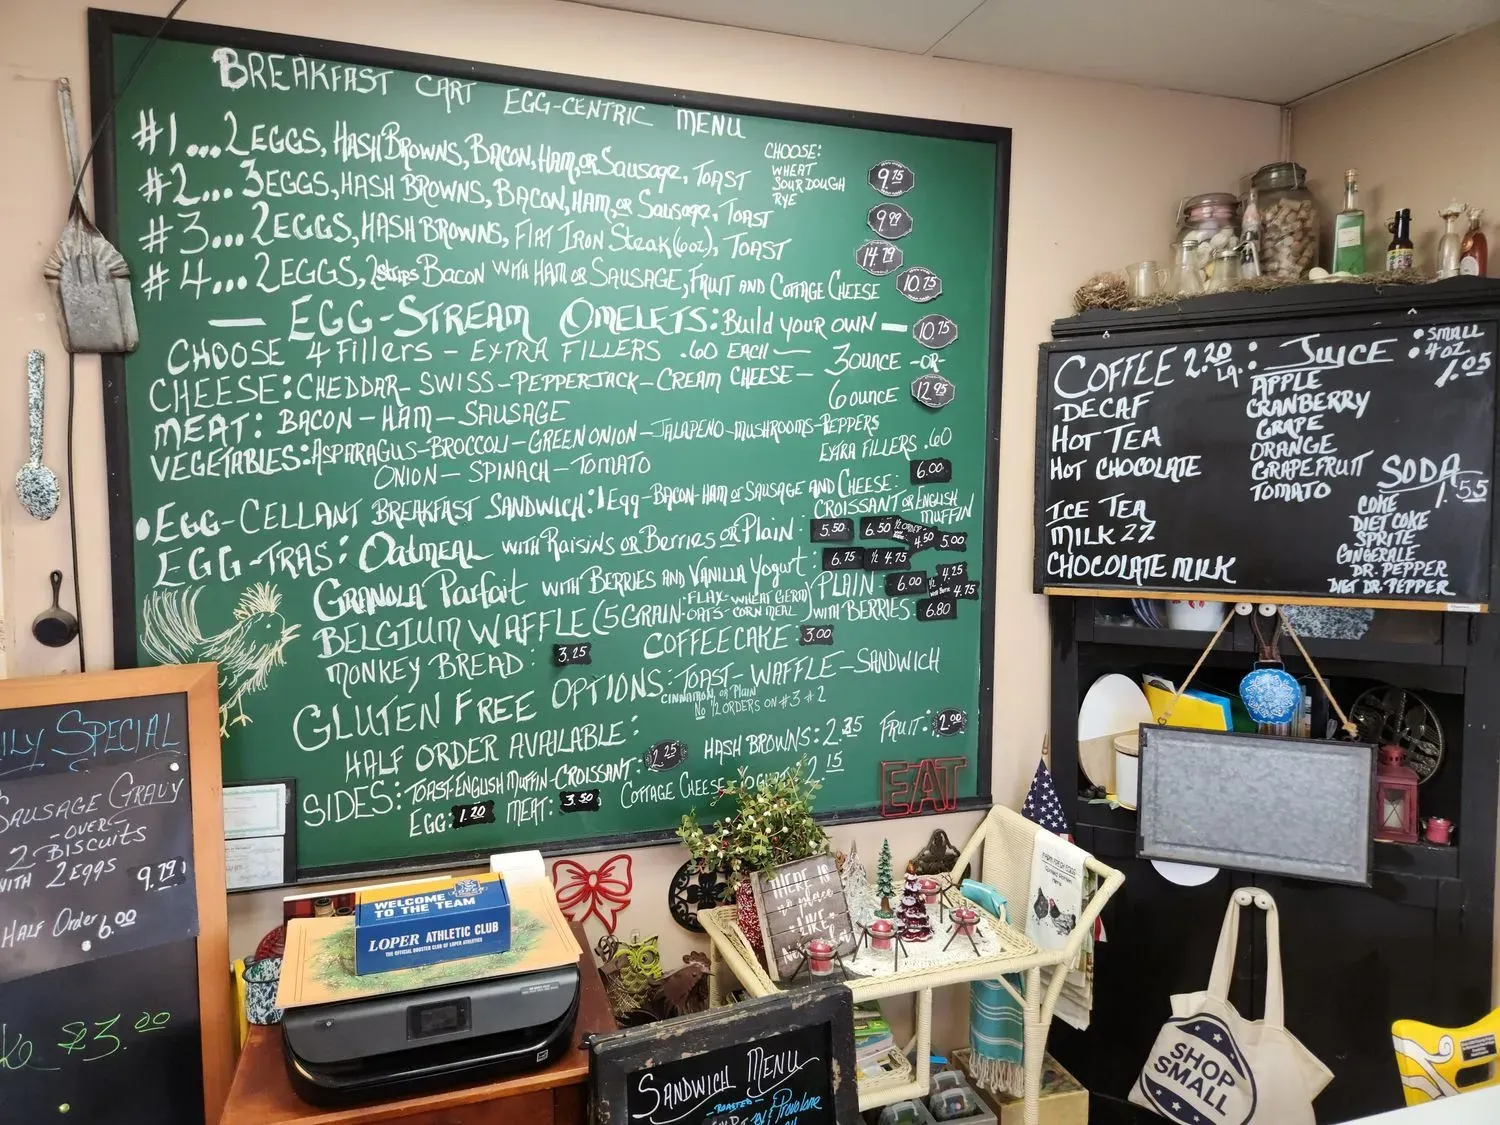 BREAKFAST CART EGG-CENTRIC MENU
#1... 2 EGGS, HASH BROWNS, BACON, HAM, OR SAUSAGE, TOAST 9.75
CHOOSE:
WHEAT
SOUR DOUGH
RYE
#2... 3 EGGS, HASH BROWNS, BACON, HAM, OR SAUSAGE, TOAST
#3... 2 EGGS, HASH BROWNS, FLAT IRON STEAK (6oz), TOAST 14.79
#4... 2 EGGS, 2 strips BACON WITH HAM OR SAUSAGE, FRUIT AND COTTAGE CHEESE 10.75
— EGG-STREAM OMELETS: Build your own — 10.75
CHOOSE 4 Fillers - EXTRA FILLERS .60 EACH — 3 OUNCE -OR-
CHEESE: CHEDDAR- SWISS- PEPPERJACK- CREAM CHEESE- 6 OUNCE 12.95
MEAT: BACON - HAM - SAUSAGE
VEGETABLES: ASPARAGUS- BROCCOLI- GREEN ONION- JALAPENO- MUSHROOMS- PEPPERS
ONION - SPINACH - TOMATO
EXTRA FILLERS .60
• EGG-CELLANT BREAKFAST SANDWICH: 1 Egg - BACON- HAM or SAUSAGE AND CHEESE: 6.00
CROISSANT OR ENGLISH MUFFIN
EGG-TRAS: Oatmeal WITH RAISINS OR BERRIES OR PLAIN: 5.50 6.50 4.50 5.00
GRANOLA Parfait WITH BERRIES AND VANILLA Yogurt: 6.75 1/2 4.75
BELGIUM WAFFLE (5 GRAIN- FLAX- WHEAT GERM
OATS- CORN MEAL) PLAIN: 6.00 1/2 4.25
WITH BERRIES: 6.80 4.75
MONKEY BREAD: 3.25 COFFEE CAKE: 3.00
GLUTEN FREE OPTIONS: TOAST - WAFFLE - SANDWICH
CINNAMON, OR PLAIN
HALF ORDER AVAILABLE: NO 1/2 ORDERS ON #3 #2
SIDES: TOAST- ENGLISH MUFFIN- CROISSANT: 2.25 HASH BROWNS: 2.35 FRUIT: 2.00
EGG: 1.20 MEAT: 3.50 COTTAGE CHEESE 2.15
EAT
COFFEE 2.20
LG.
DECAF
HOT TEA
HOT CHOCOLATE
ICE TEA
MILK 2%
CHOCOLATE MILK
: JUICE
• SMALL
• 4 OZ
1.05
APPLE
CRANBERRY
GRAPE
ORANGE
GRAPEFRUIT
TOMATO
SODA
1.55
COKE
DIET COKE
SPRITE
GINGERALE
DR. PEPPER
DIET DR. PEPPER
ILY SPECIAL
SAUSAGE GRAVY
-OVER-
2 BISCUITS
WITH 2 EGGS 9.79
HALF Order 6.00
$3.00
WELCOME
TO THE TEAM
LOPER ATHLETIC CLUB
THE OFFICIAL BOOSTER CLUB OF LOPER ATHLETICS
THERE IS
no place
LIKE
SANDWICH MENU
-ROASTED-
Provolone
SHOP
SMALL